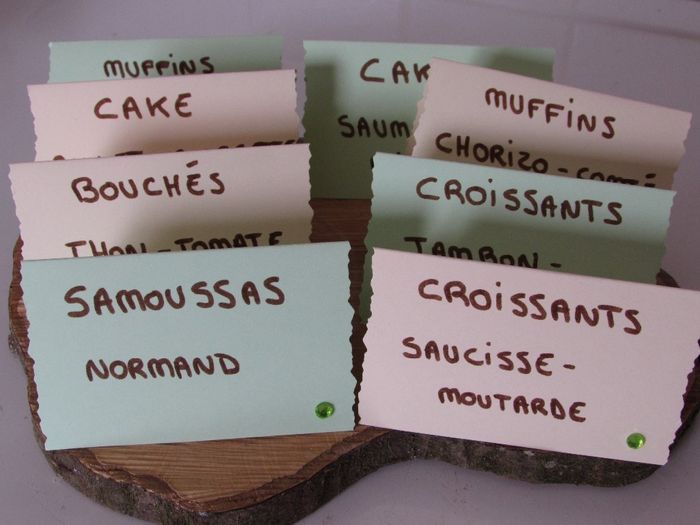 MUFFINS
CAKE
BOUCHÉS
THON-TOMATE
SAMOUSSAS
NORMAND
CAK
SAUM
MUFFiNS
CHORIZO-COMTÉ
CROiSSANTS
JAMBON-
CROiSSANTS
SAUCiSSE-
MOUTARDE